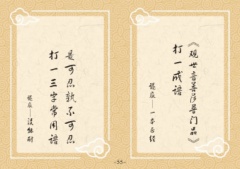 《观世音菩萨普门品》
打一成语
谜底——一本正经
是可忍孰不可忍
打一三字常用语
谜底——没能耐
-55-